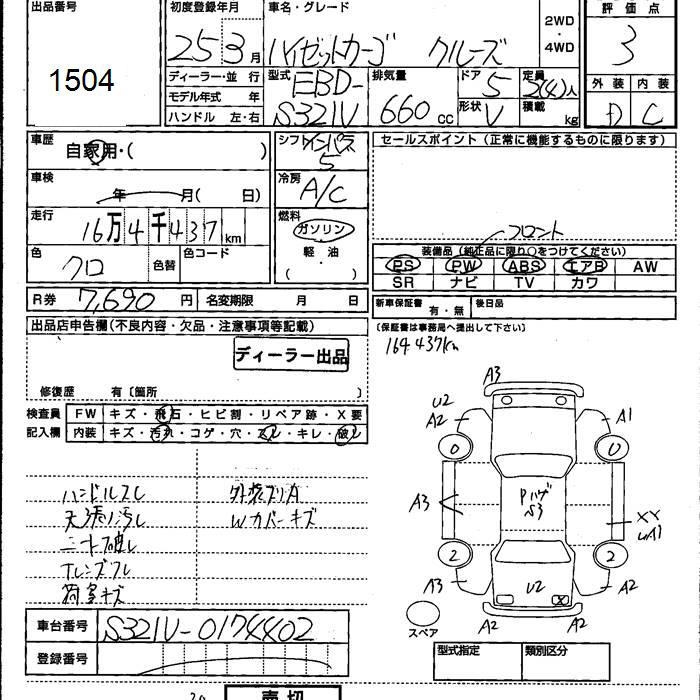 出品番号
1504
初度登録年月
25 3月
車名・グレード
ハイゼットカーゴ クルーズ
2WD
・
4WD
評価点
3
外装 内装
D C
ディーラー・並行
モデル年式 年
ハンドル 左・右
型式
EBD-
S321V
排気量
660cc
ドア
5
定員
2(4)人
形状
V
積載
kg
車歴
自家用・( )
車検
年 月( 日)
走行
16万4千437km
色
クロ
色替
色コード
シフト インパネ
5
冷房
A/C
燃料
ガソリン
軽油
( )
セールスポイント(正常に機能するものに限ります)
フロント
装備品(純正品に限り○をつけてください)
PS PW ABS エアB AW
SR ナビ TV カワ
R券 7,690円
名変期限 月 日
新車保証書 有・無
後日品
(保証書は事務局へ提出して下さい)
164437km
出品店申告欄(不良内容・欠品・注意事項等記載)
ディーラー出品
修復歴 有〔箇所 〕
検査員
記入欄
FW キズ・飛石・ヒビ割・リペア跡・X要
内装 キズ・汚れ・コゲ・穴・スレ・キレ・破レ
ハンドルスレ
天張汚レ
シート破レ
荷室キズ
外装
Wカバーキズ
A3
U2
A2
A1
0
U
A3
Pハゲ
S3
XX
2
2
A3
U2
A2
A2
A2
スペア
車台番号 S321V-0174402
登録番号
型式指定 類別区分
売切